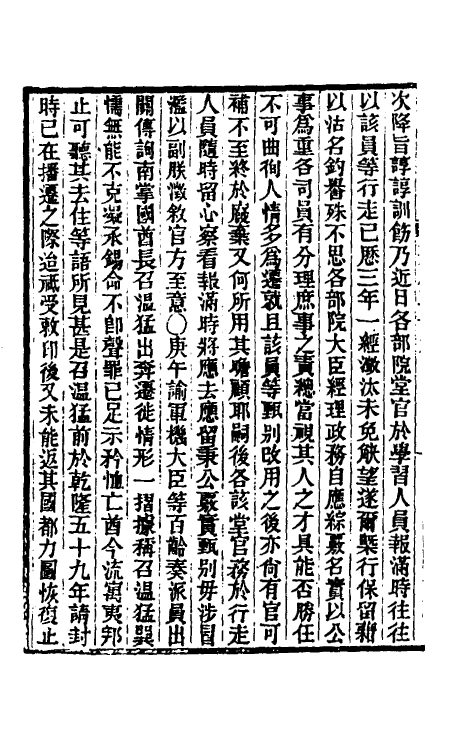 次降旨諄諄訓飭乃近日各部院堂官於學習人員報滿時往往
以該員等行走已歷三年一經澈汰未免觖望遂爾槩行保留藉
以沽名釣譽殊不思各部院大臣經理政務自應綜覈名實以公
事爲重各司員有分理庶事之責總當視其人之才具能否勝任
不可曲徇人情多爲遷就且該員等甄别改用之後亦尙有官可
補不至終於廢棄又何所用其瞻顧耶嗣後各該堂官務於行走
人員隨時留心察看報滿時將應去應留秉公覈實甄别毋涉冐
濫以副朕澂敘官方至意〇庚午諭軍機大臣等百齡奏派員出
關傳詢南掌國酋長召温猛出奔遷徙情形一摺據稱召温猛巽
懦無能不克凝承錫命不卽聲罪已足示矜恤亡酋今流寓夷邦
止可聽其去住等語所見甚是召温猛前於乾隆五十九年請封
時已在播遷之際迨祗受敕印後又未能返其國都力圖恢復止